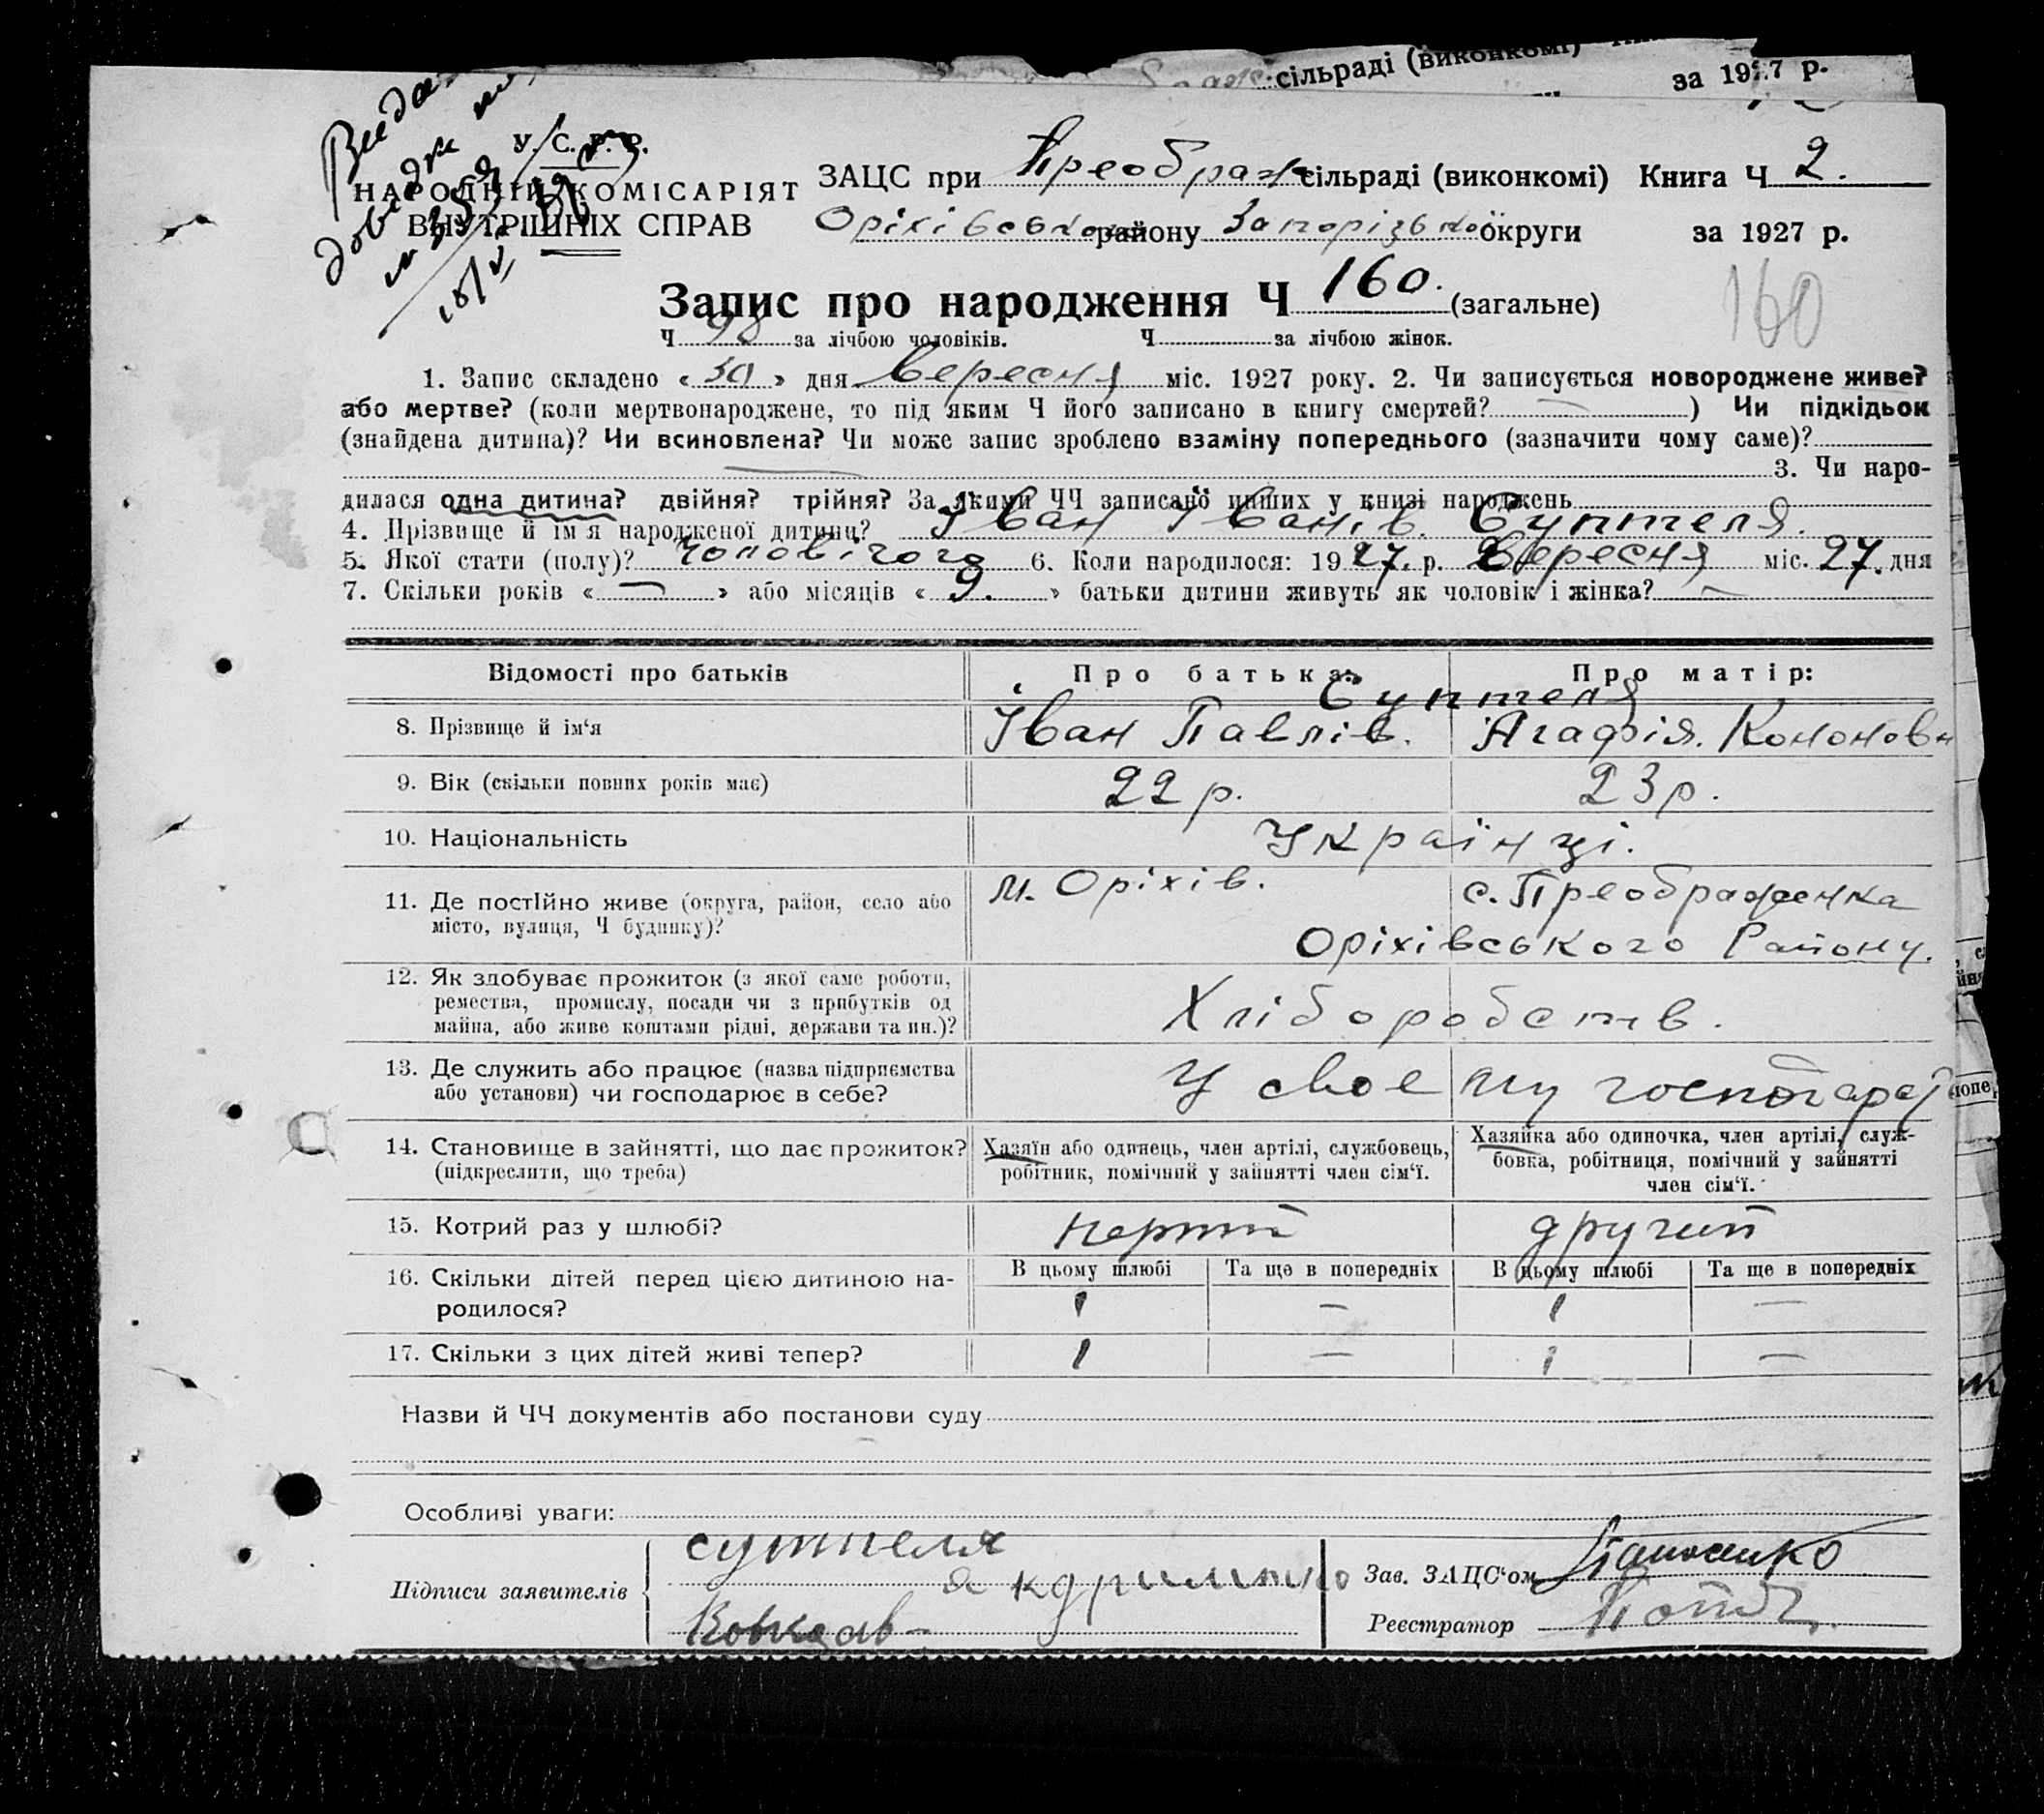 сільраді (виконкомі)
за 1927 р.
Видана
довідка
У. С. Р. Р.
НАРОДНІЙ КОМІСАРІЯТ
ВНУТРІШНІХ СПРАВ
ЗАЦС при Преображ сільраді (виконкомі) Книга Ч 2.
Оріхівського району Запорізької округи за 1927 р.
Запис про народження Ч 160. (загальне)
160
Ч 98 за лічбою чоловіків. Ч за лічбою жінок.
1. Запис складено « 30 » дня Вересня міс. 1927 року. 2. Чи записується новороджене живе?
або мертве? (коли мертвонароджене, то під яким Ч його записано в книгу смертей? — ) Чи підкідьок
(знайдена дитина)? Чи всиновлена? Чи може запис зроблено взаміну попереднього (зазначити чому саме)?
— 3. Чи наро-
дилася одна дитина? двійня? трійня? За якими ЧЧ записано инших у книзі народжень
4. Прізвище й ім'я народженої дитини? Іван Іванів. Суптеля.
5. Якої стати (полу)? чоловічого 6. Коли народилося: 1927. р. Вересня міс. 27. дня
7. Скільки років « — » або місяців « 9. » батьки дитини живуть як чоловік і жінка? —
Відомості про батьків Про батька: Про матір:
Суптеля
8. Прізвище й ім'я Іван Павлів. Агафія. Кононовн
9. Вік (скільки повних років має) 22 р. 23 р.
10. Національність Українці.
11. Де постійно живе (округа, район, село або місто, вулиця, Ч будинку)? м. Оріхів. с. Преображенка
Оріхівського Району.
12. Як здобуває прожиток (з якої саме роботи,
ремества, промислу, посади чи з прибутків од
майна, або живе коштами рідні, держави та ин.)? Хліборобств.
13. Де служить або працює (назва підприємства
або установи) чи господарює в себе? У своему господарст
14. Становище в зайнятті, що дає прожиток?
(підкреслити, що треба)
Хазяїн або одинець, член артілі, службовець,
робітник, помічний у зайнятті член сім'ї.
Хазяйка або одиночка, член артілі, служ-
бовка, робітниця, помічний у зайнятті
член сім'ї.
15. Котрий раз у шлюбі? перший другий
16. Скільки дітей перед цією дитиною на-
родилося?
В цьому шлюбі Та ще в попередніх В цьому шлюбі Та ще в попередніх
1 — 1 —
17. Скільки з цих дітей живі тепер? 1 — 1 —
Назви й ЧЧ документів або постанови суду
Особливі уваги:
Підписи заявителів
суптеля
Зав. ЗАЦС'ом
Реєстратор